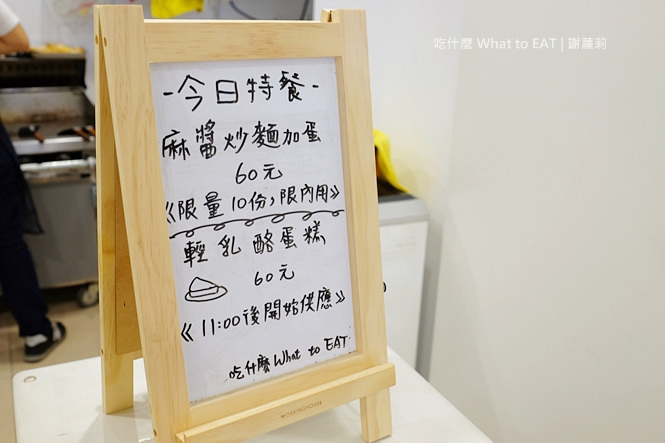 吃什麼 What to EAT | 謝蘿莉
-今日特餐-
麻醬炒麵加蛋
60元
《限量10份,限內用》
輕乳酪蛋糕
60元
《11:00後開始供應》
吃什麼What to EAT
WORKINGHOUSE